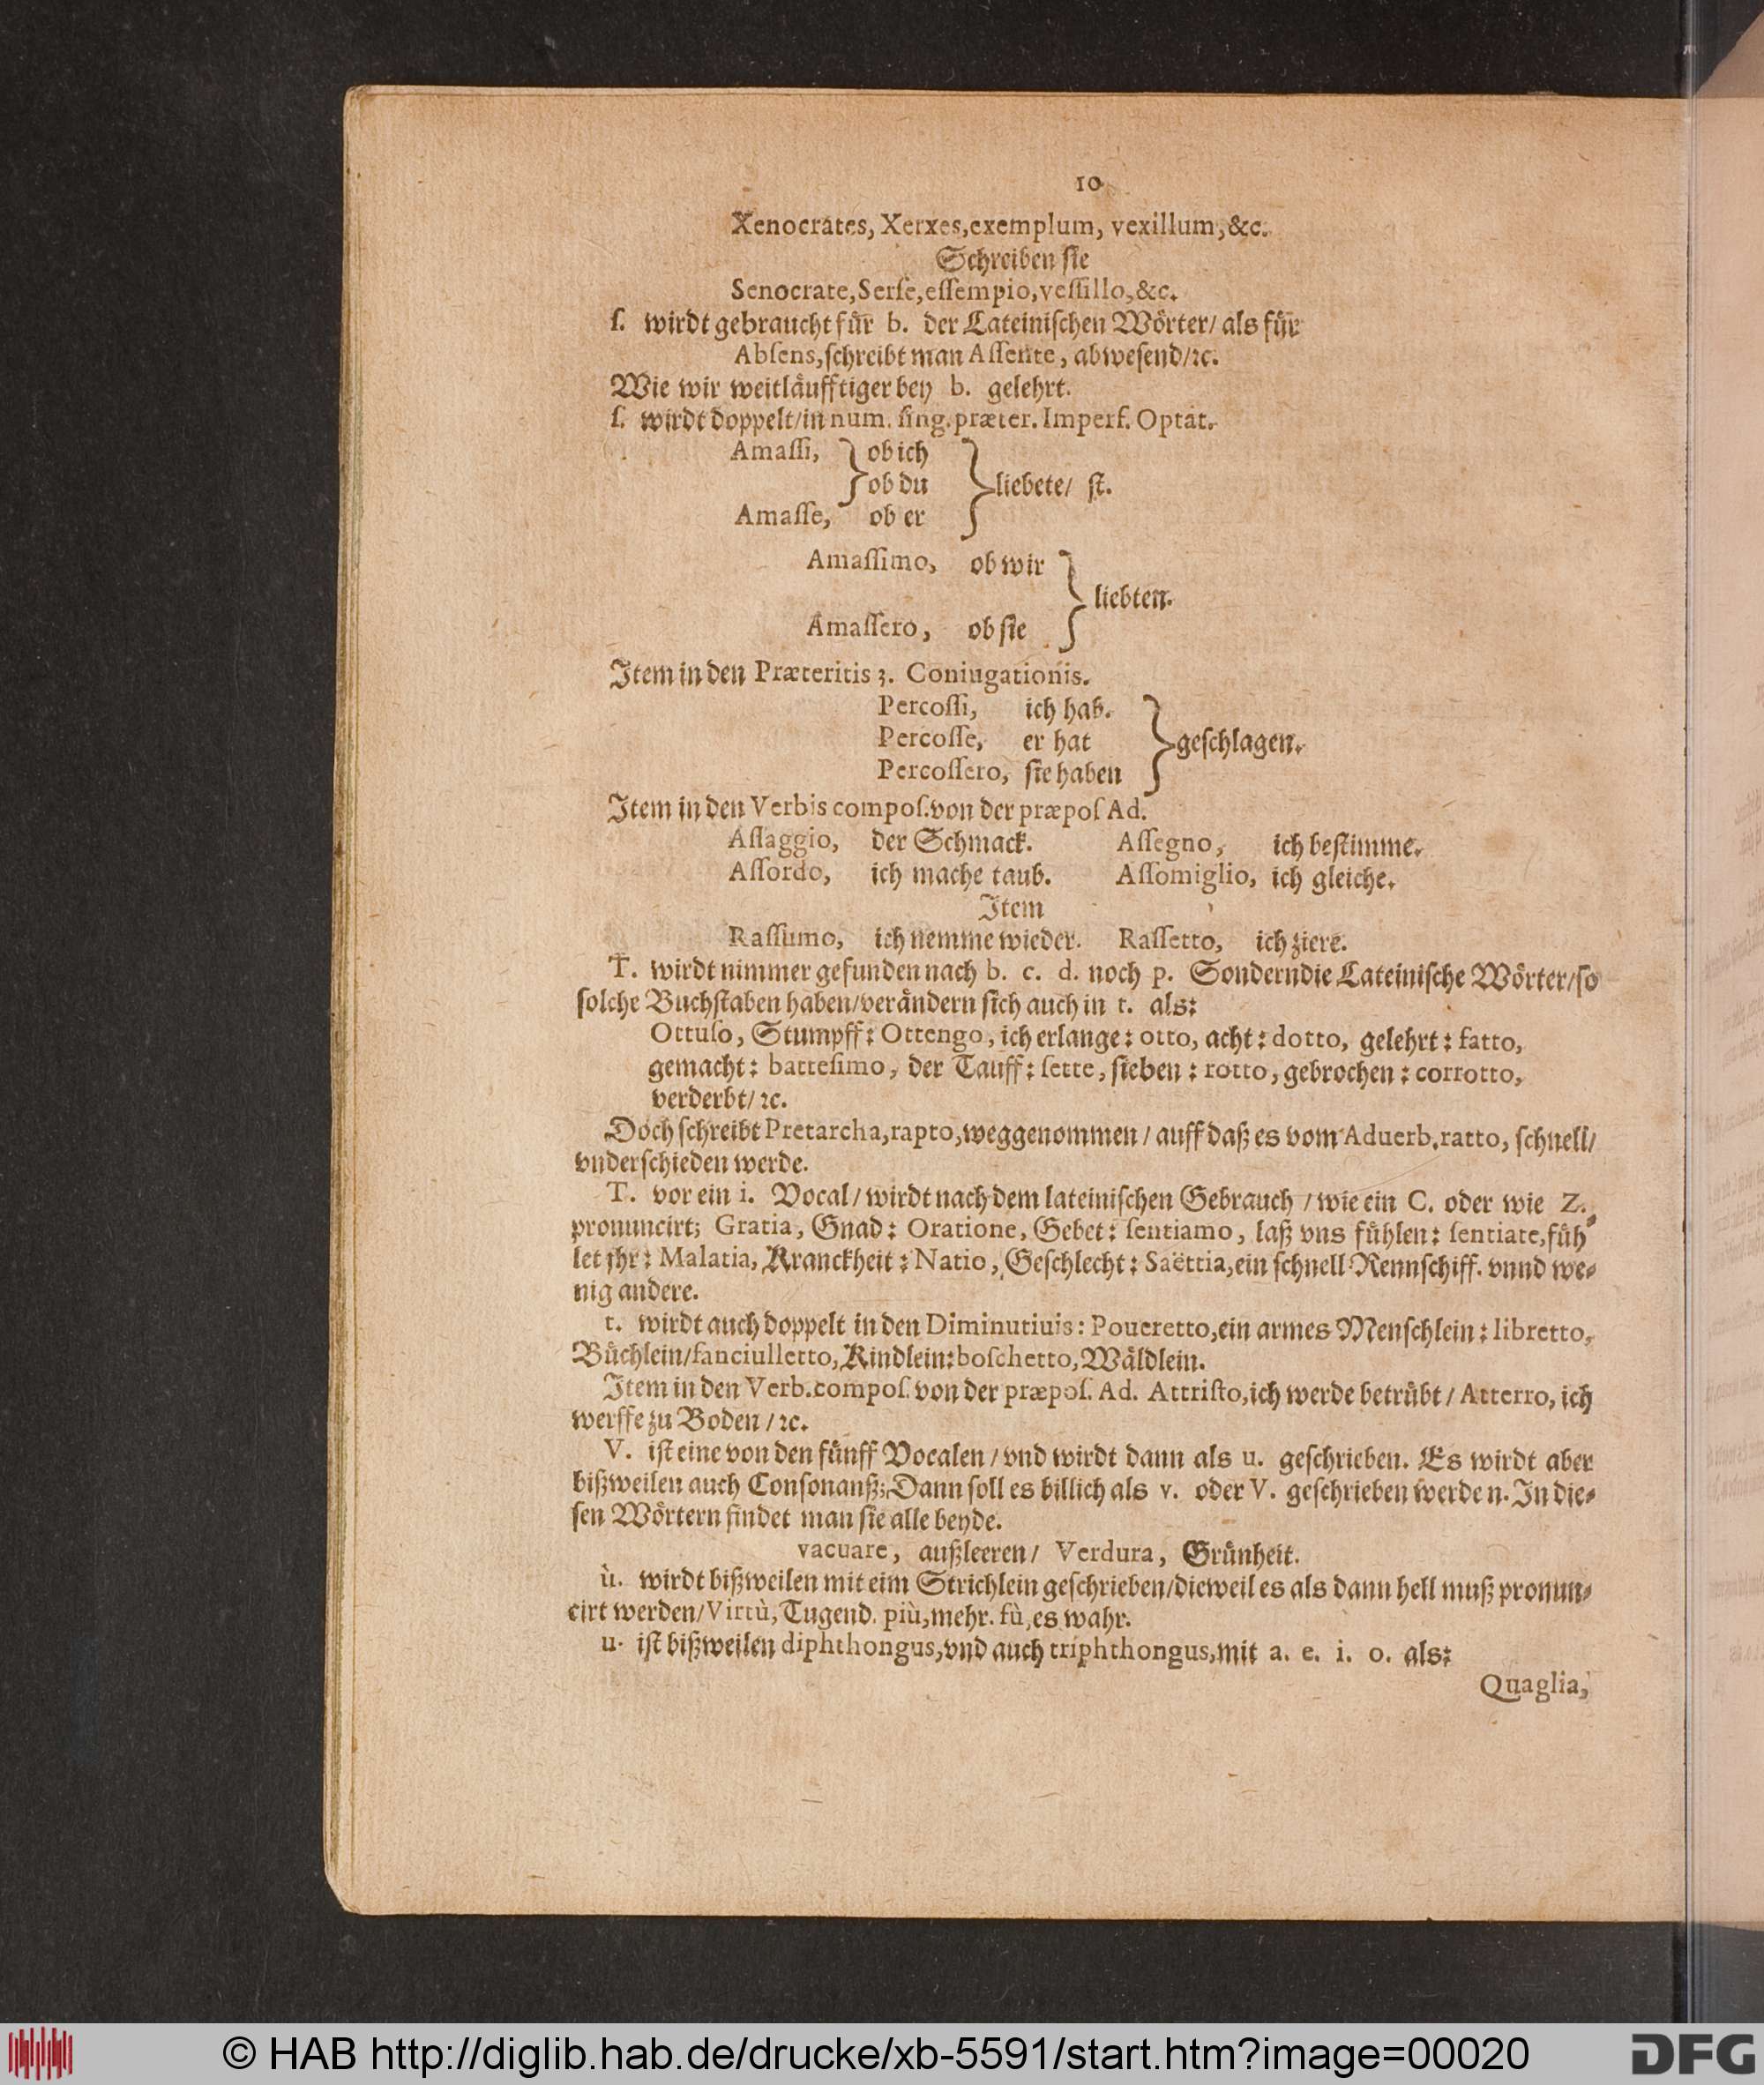 10
Xenocrates, Xerxes, exemplum, vexillum, &c.
Schreiben sie
Senocrate, Serſe, eſſempio, veſſillo, &c.
ſ. wirdt gebraucht fuͤr b. der Lateiniſchen Woͤrter / als fuͤr
Abſens, ſchreibt man Aſſente, abweſend / ꝛc.
Wie wir weitlaͤufftiger bey b. gelehrt.
ſ. wirdt doppelt / in num. ſing. præter. Imperf. Optat.
Amaſſi, } ob ich }
} ob du } liebete / ſt.
Amaſſe, ob er }
Amaſſimo, ob wir }
} liebten.
Amaſſero, ob ſie }
Item in den Præteritis 3. Coniugationis.
Percoſſi, ich hab. }
Percoſſe, er hat } geſchlagen.
Percoſſero, ſie haben }
Item in den Verbis compoſ. von der præpoſ Ad.
Aſſaggio, der Schmack. Aſſegno, ich beſtimme.
Aſſordo, ich mache taub. Aſſomiglio, ich gleiche.
Item
Raſſumo, ich nemme wieder. Raſſetto, ich ziere.
T. wirdt nimmer gefunden nach b. c. d. noch p. Sondern die Lateiniſche Woͤrter / ſo
ſolche Buchſtaben haben / veraͤndern ſich auch in t. als:
Ottuſo, Stumpff: Ottengo, ich erlange: otto, acht: dotto, gelehrt: fatto,
gemacht: batteſimo, der Tauff: ſette, ſieben: rotto, gebrochen: corrotto,
verderbt / ꝛc.
Doch ſchreibt Pretarcha, rapto, weggenommen / auff daß es vom Aduerb. ratto, ſchnell /
vnderſchieden werde.
T. vor ein i. Vocal / wirdt nach dem lateiniſchen Gebrauch / wie ein C. oder wie Z.
pronuncirt; Gratia, Gnad: Oratione, Gebet: ſentiamo, laß vns fuͤhlen: ſentiate, fuͤh⸗
let jhr: Malatia, Kranckheit: Natio, Geſchlecht: Saëttia, ein ſchnell Rennſchiff. vnnd we⸗
nig andere.
t. wirdt auch doppelt in den Diminutiuis: Poueretto, ein armes Menſchlein: libretto,
Buͤchlein / fanciulletto, Kindlein: boſchetto, Waͤldlein.
Item in den Verb. compoſ. von der præpoſ. Ad. Attriſto, ich werde betruͤbt / Atterro, ich
werffe zu Boden / ꝛc.
V. iſt eine von den fuͤnff Vocalen / vnd wirdt dann als u. geſchrieben. Es wirdt aber
bißweilen auch Conſonanß; Dann ſoll es billich als v. oder V. geſchrieben werden. In die⸗
ſen Woͤrtern findet man ſie alle beyde.
vacuare, außleeren / Verdura, Gruͤnheit.
ù. wirdt bißweilen mit eim Strichlein geſchrieben / dieweil es als dann hell muß pronun⸗
cirt werden / Virtù, Tugend. più, mehr. fù, es wahr.
u. iſt bißweilen diphthongus, vnd auch triphthongus, mit a. e. i. o. als:
Quaglia,
© HAB http://diglib.hab.de/drucke/xb-5591/start.htm?image=00020
DFG